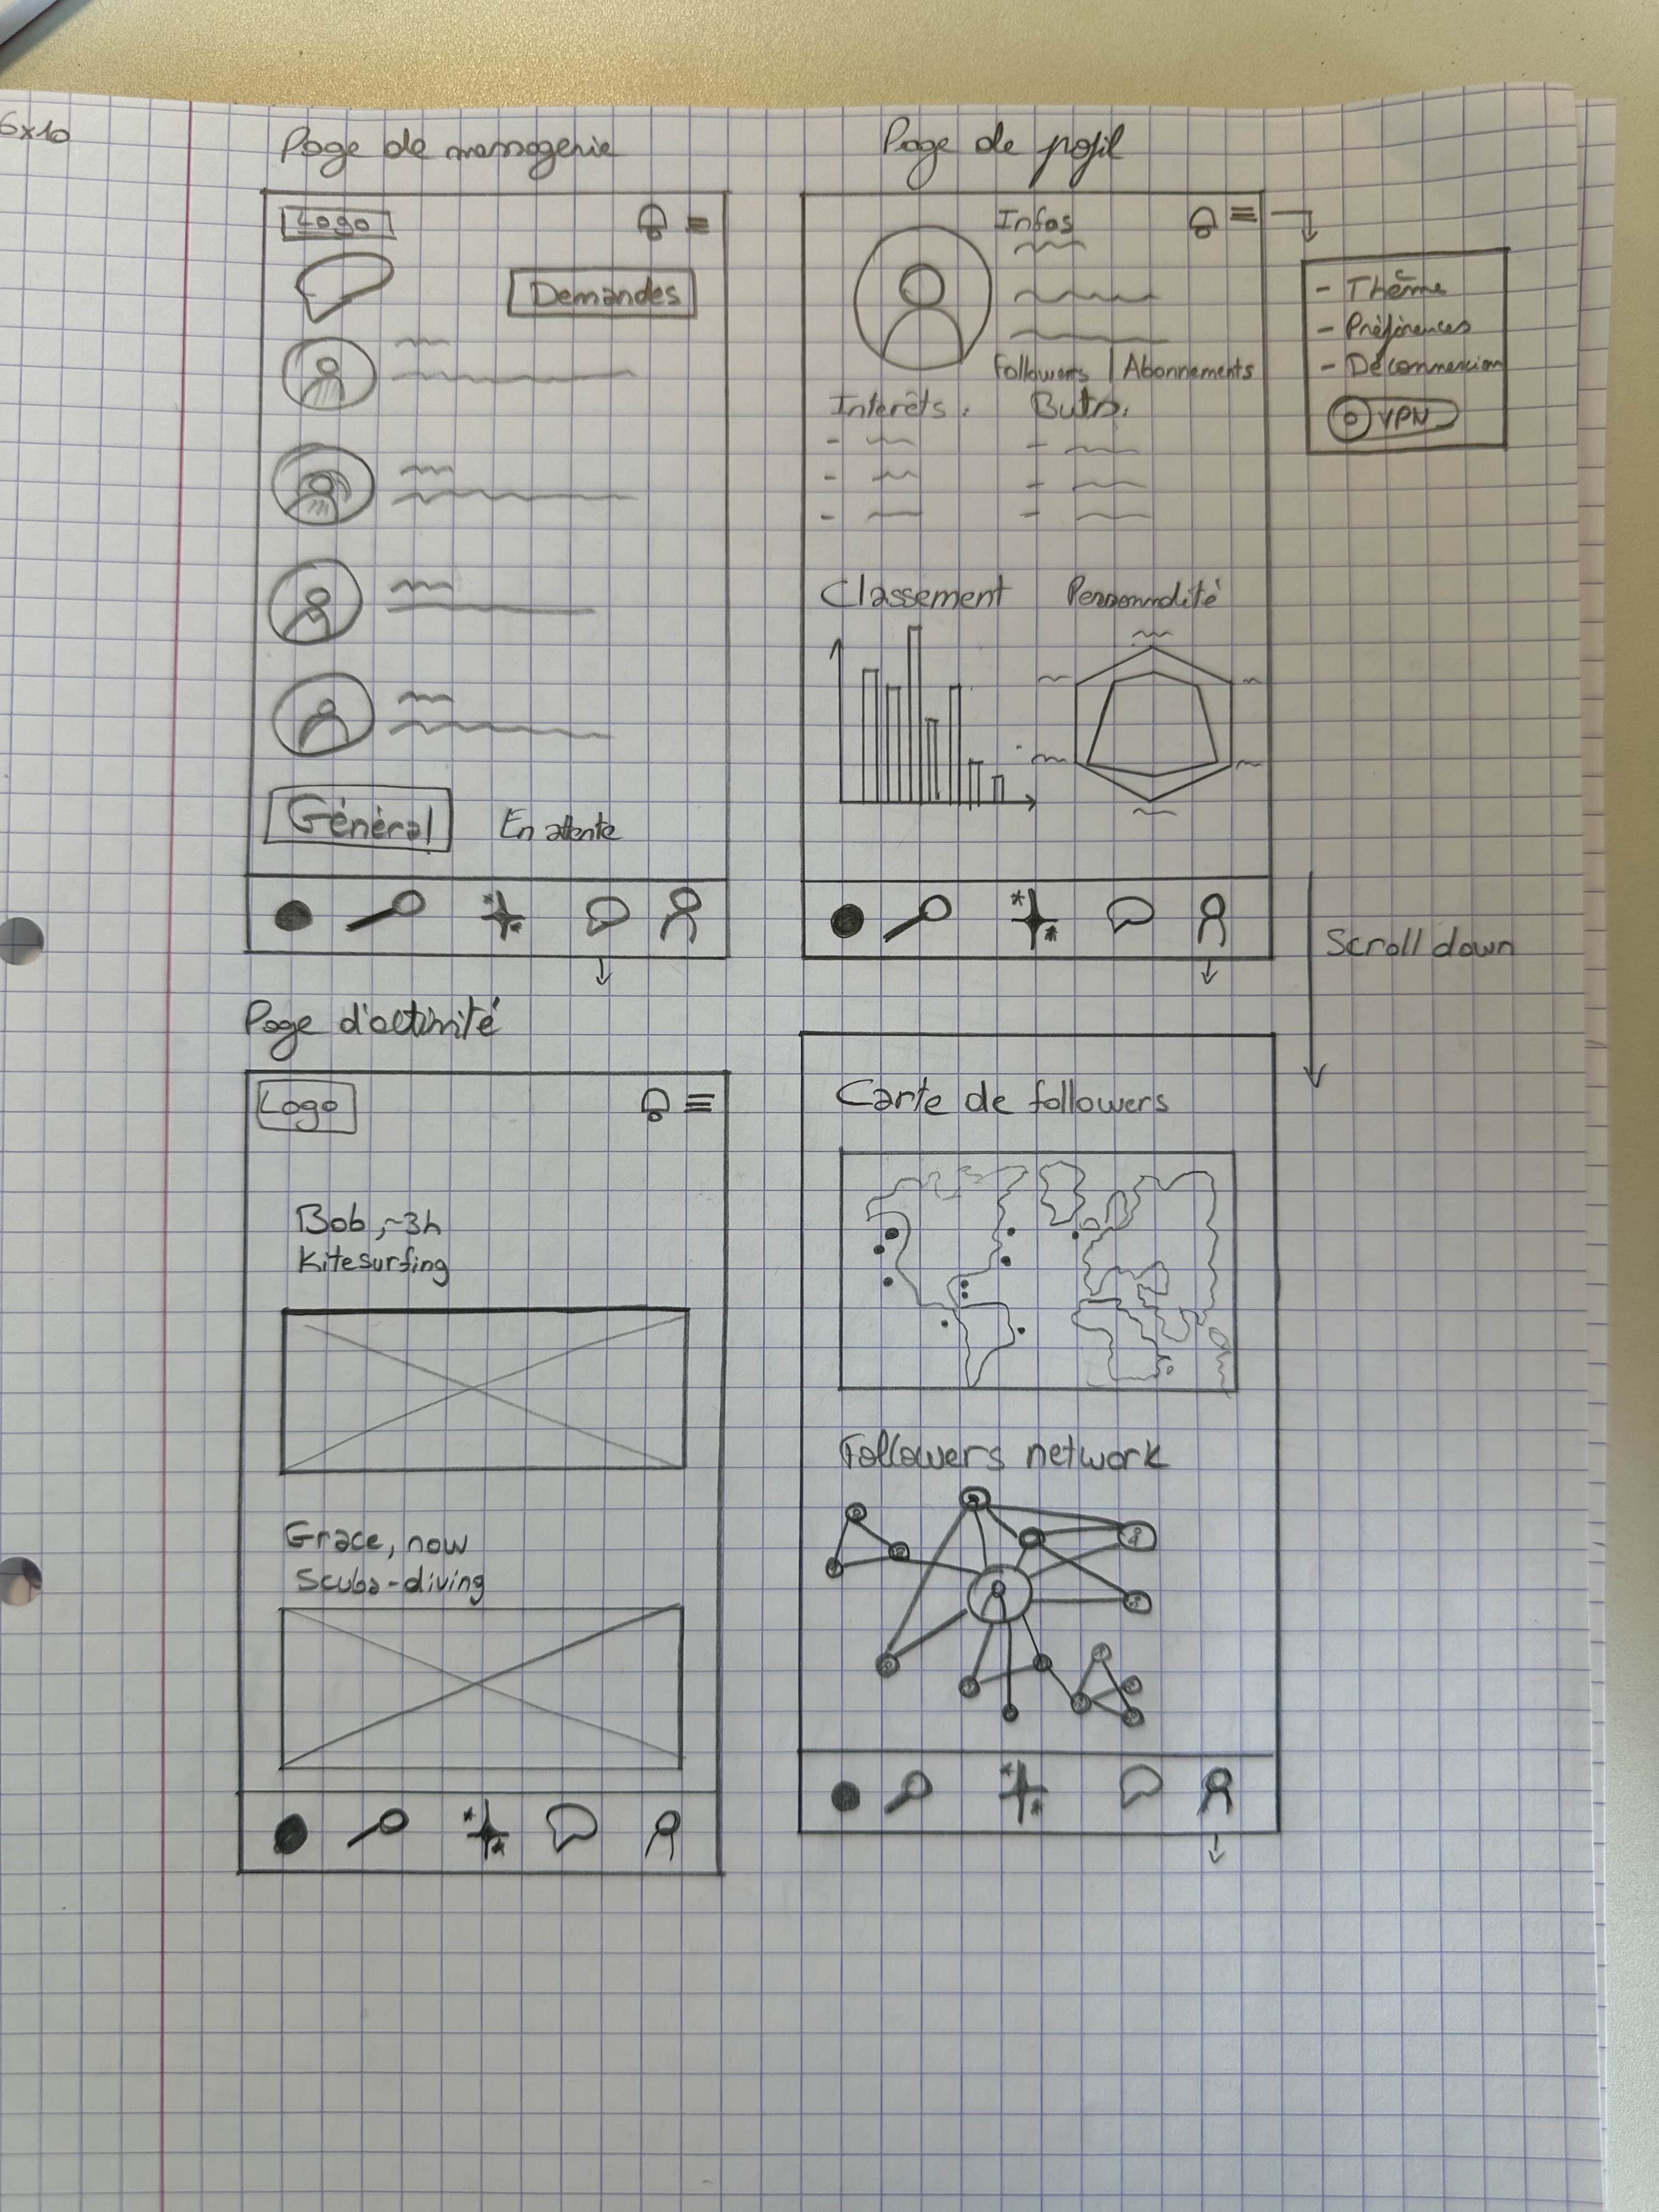 6x10
Page de messagerie
Logo
Demandes
Général
En attente
Page de pofil
Infos
Followers | Abonnements
Interêts :
Buts:
Classement
Personnalité
- Thème
- Préférences
- Déconnexion
VPN
Scroll down
Page d'activité
Logo
Bob, ~3h
Kitesurfing
Grace, now
Scuba-diving
Carte de followers
Followers network